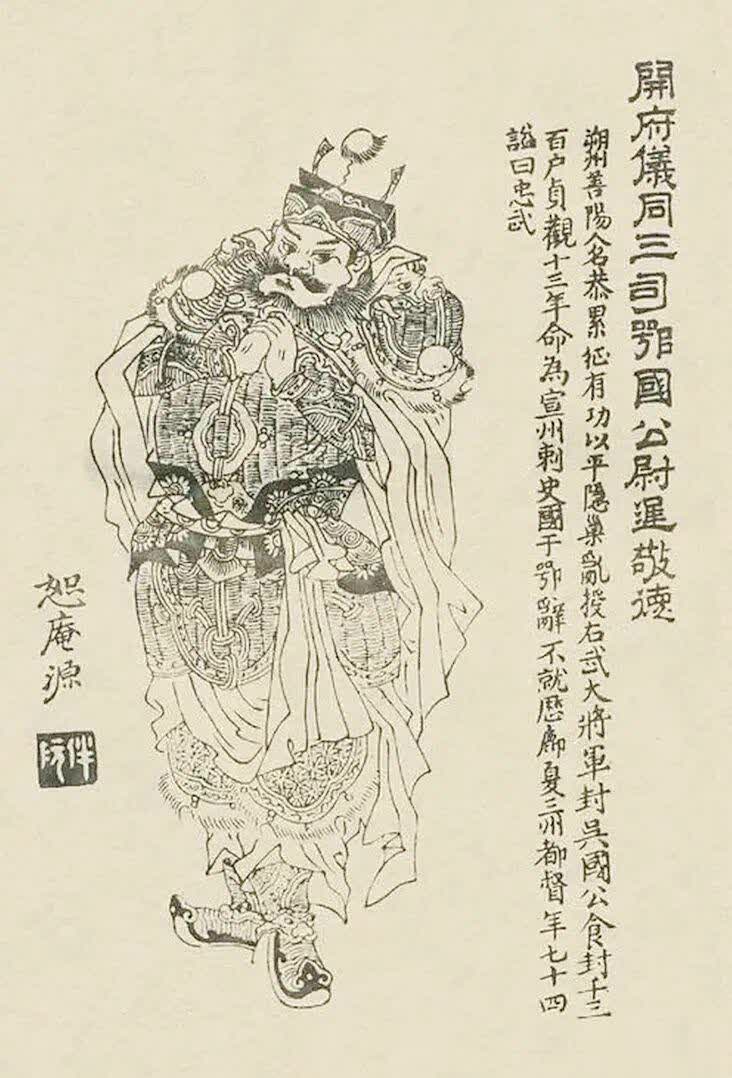 開府儀同三司鄂國公尉遲敬德
朔州善陽人名恭累征有功以平隱巢亂授右武大將軍封吳國公食封千三
百户貞觀十三年命為宣州剌史國于鄂辭不就歷鄜夏三州都督年七十四
謚曰忠武
恕庵源
伴阮